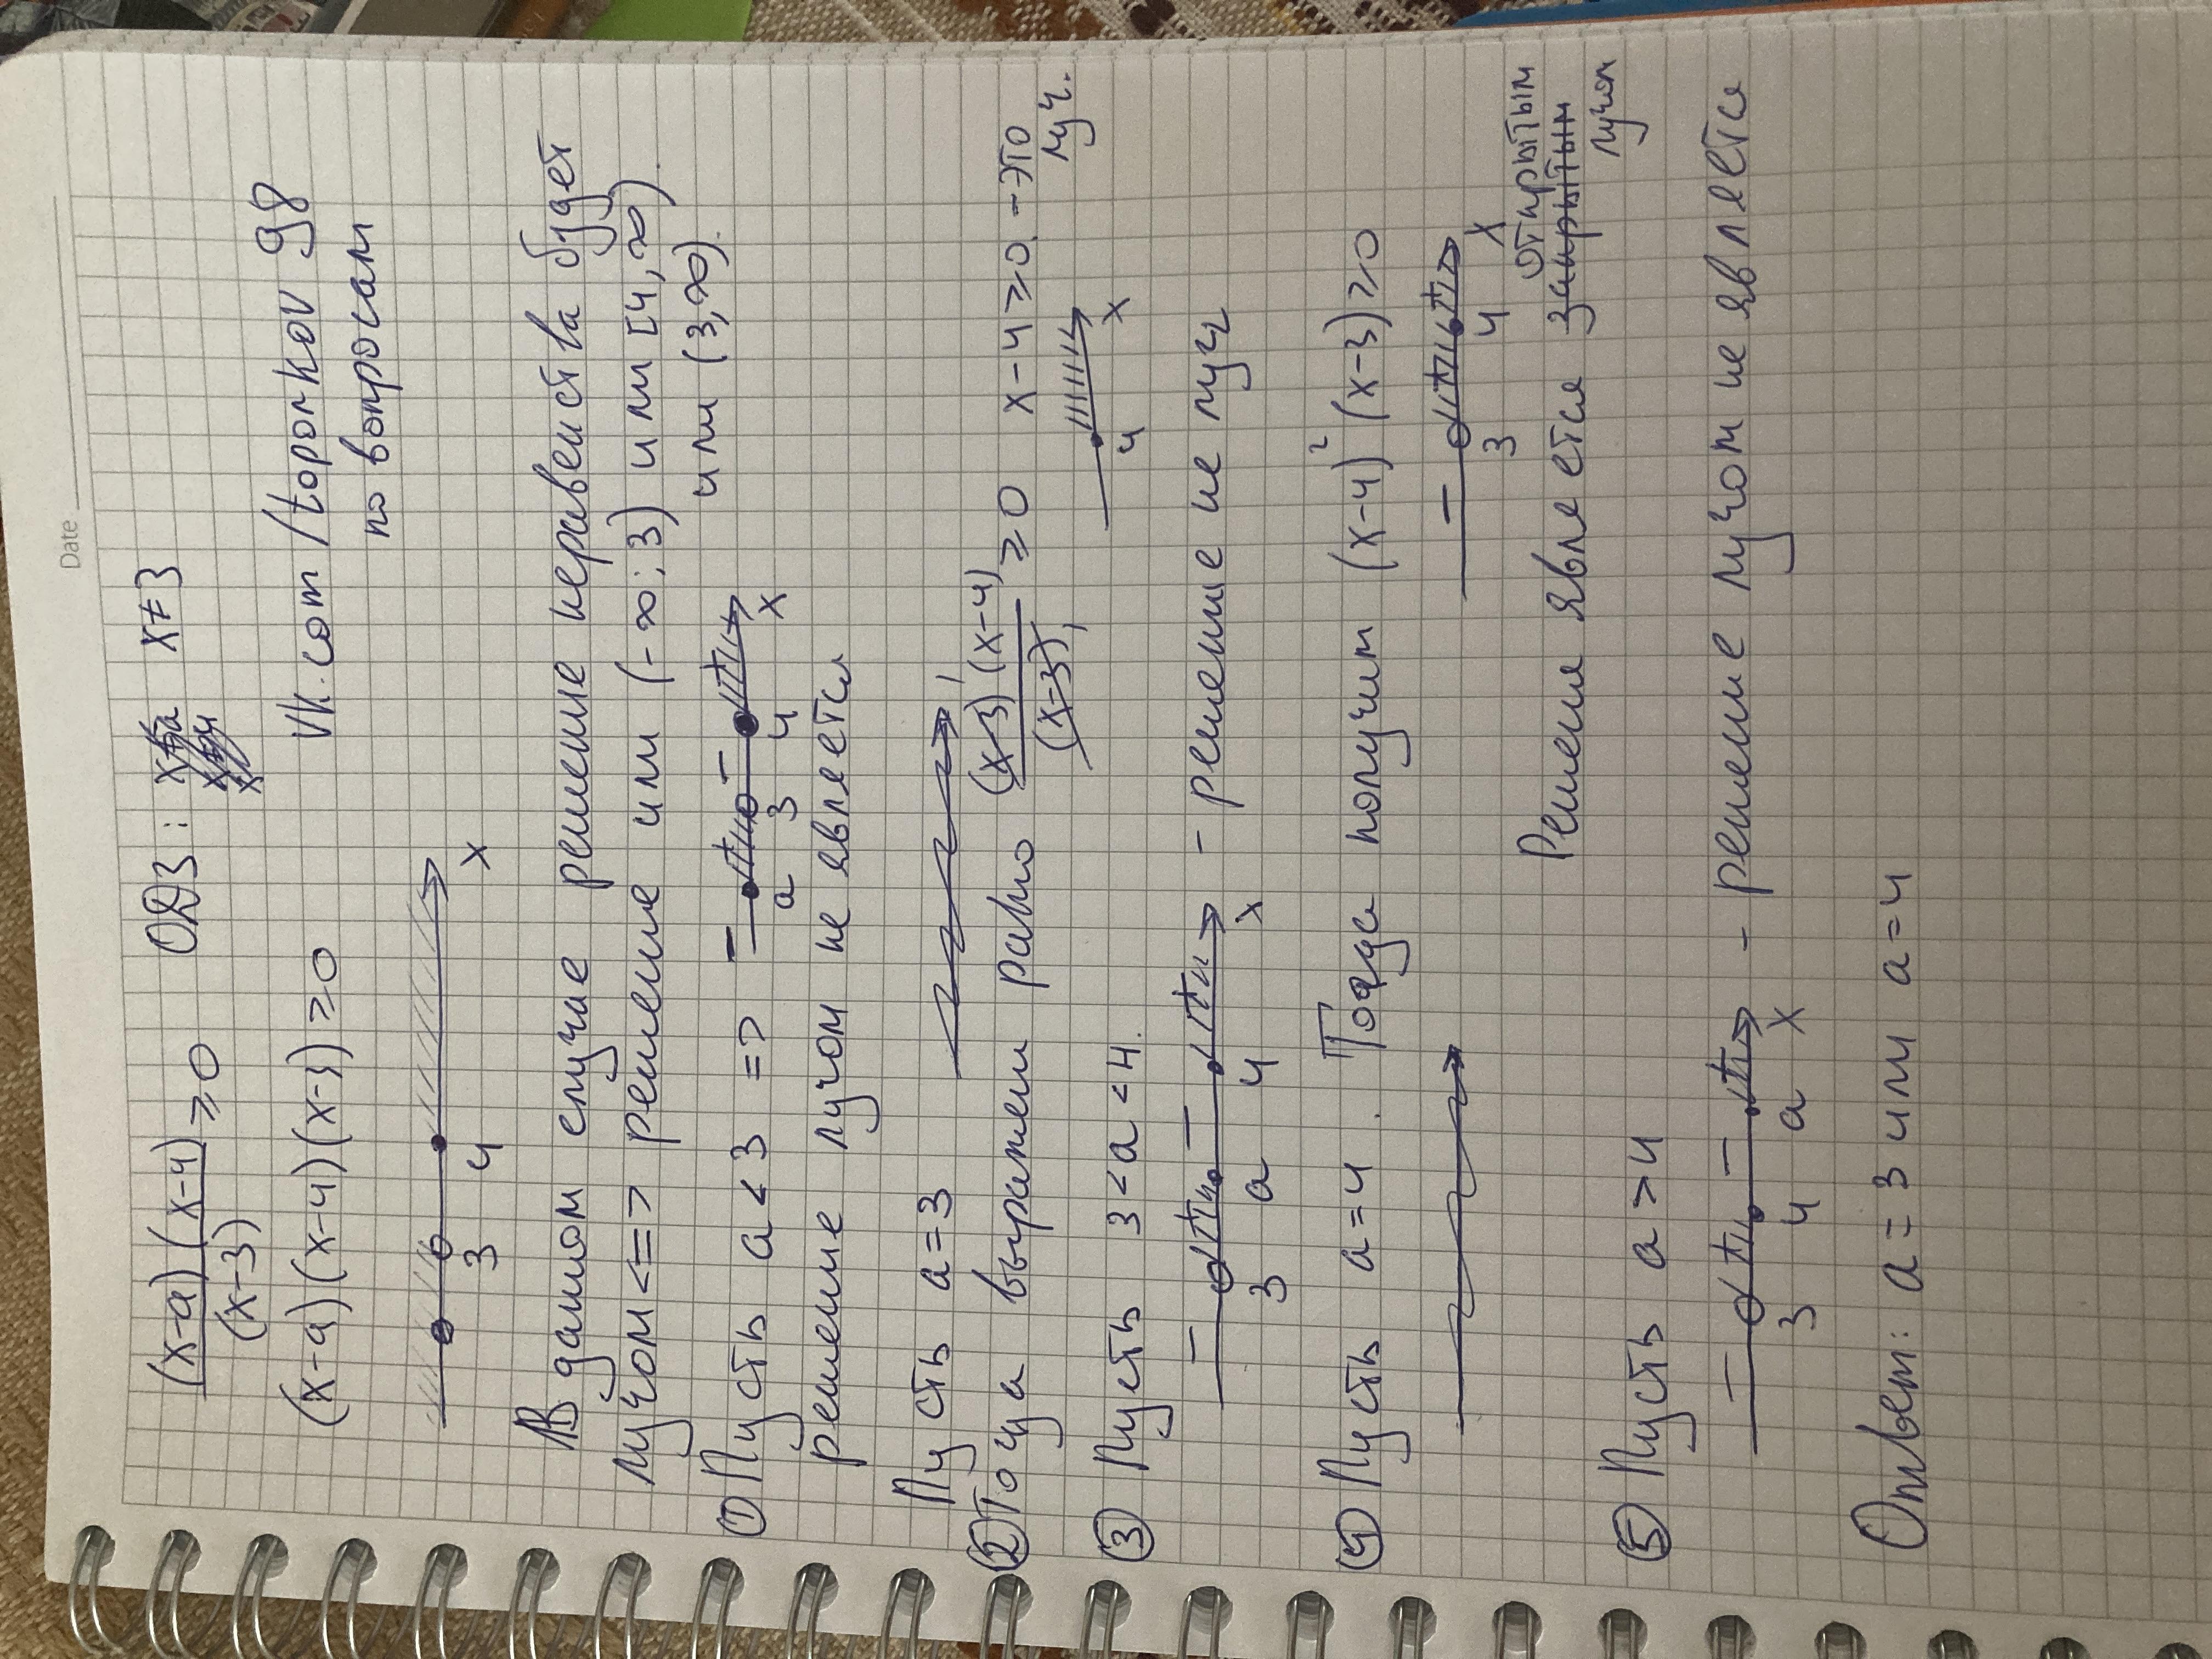 Date
(x-a)(x-4)/(x-3) ≥ 0 ОДЗ: x≠3
(x-a)(x-4)(x-3) ≥ 0 vk.com/toporkov98
по вопросам
3 4 x
В данном случае решение неравенства будет
лучом <=> решение или (-∞; 3) или [4, ∞)
или (3, ∞).
① Пусть a < 3 => - + - +
a 3 4 x
решение лучом не является
Пусть a = 3
② Тогда выражен равно (x-3)(x-4)/(x-3) ≥ 0 x-4 ≥ 0. - это
луч.
4 x
③ Пусть 3 < a < 4.
- + - + - решение не луч
3 a 4 x
④ Пусть a = 4. Тогда получим (x-4)² (x-3) ≥ 0
- + +
3 4 x
Решение является закрытым открытым
лучом
⑤ Пусть a > 4
- + - + - решение лучом не является
3 4 a x
Ответ: a = 3 или a = 4